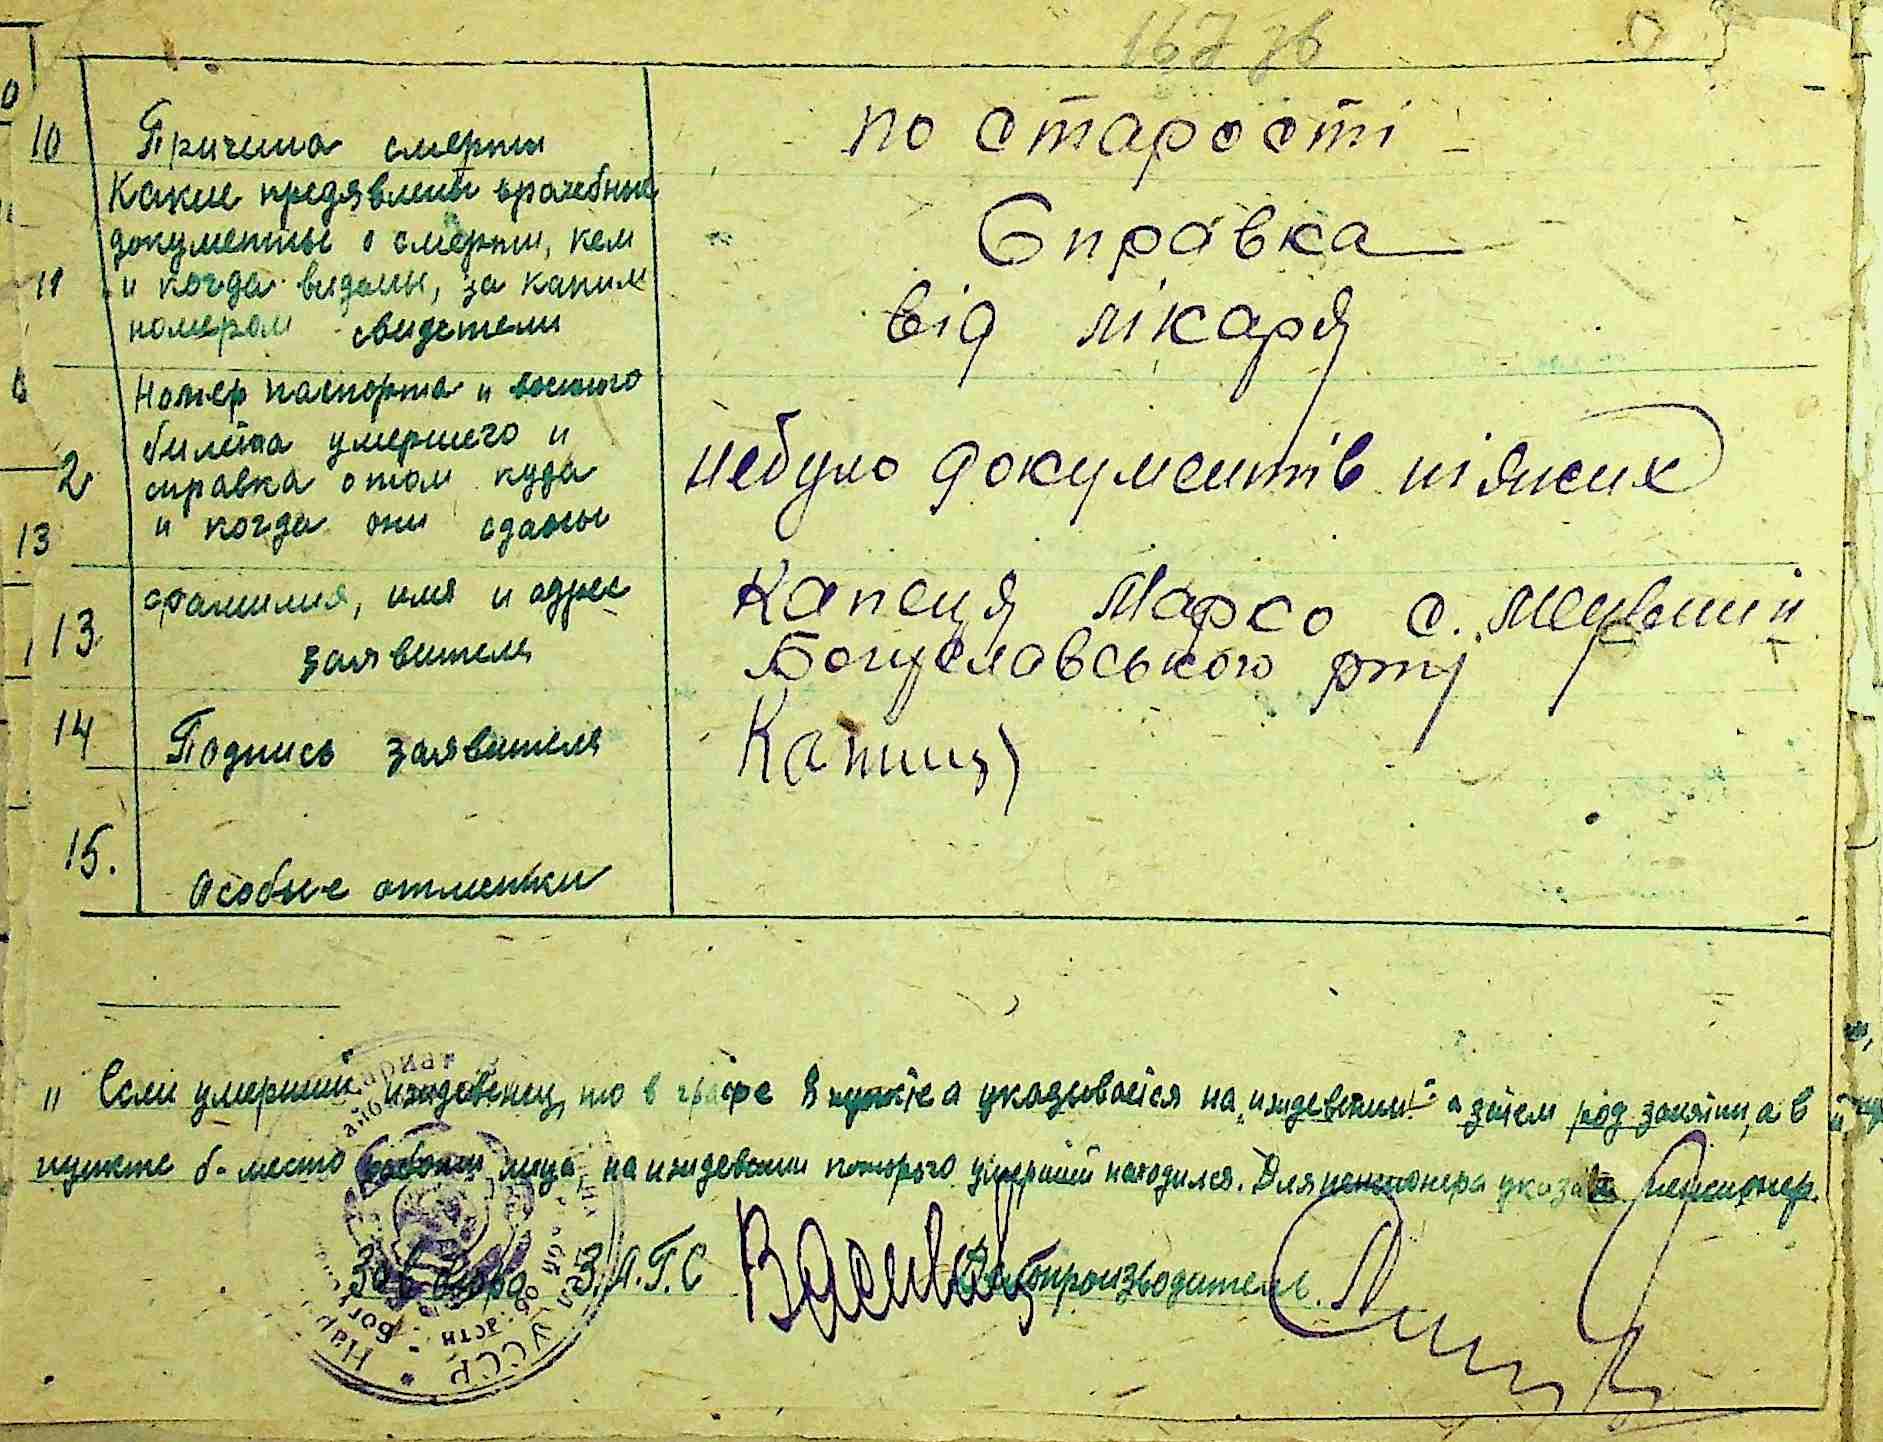 167 зв
10 Причина смерти
по старості
11 Какие предявлены врачебные
документы о смерти, кем
и когда видани, за каким
номером свидетели
Справка
від лікаря
2 Номер паспорта и военого
билета умершего и
справка о том куда
и когда они сданы
небуло документів ніяких
13
13 Фамилия, имя и адрес
заявителя
Капсця Марко с.
Богуславського р-ну
14 Подпись заявителя
15. Особые отметки
Если умерший иждевенец, то в графе 8 пункте а указывается на "иждевении" а затем род занятий, а в
пункте б- место работы лица на иждевении которого умерший находился. Для пенсионера указать Пенсионер.
Зав Бюро З.А.Г.С Делопроизводитель
УССР